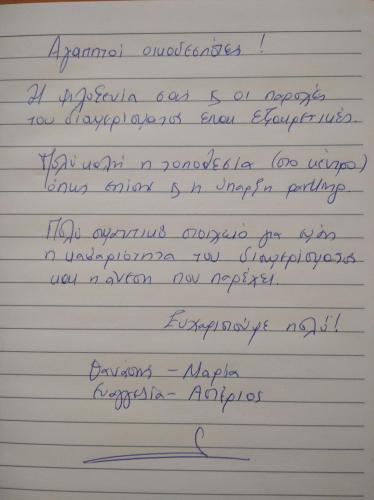 Αγαπητοί οικοδεσπότες !
Η φιλοξενία σας & οι παροχές
του διαμερίσματος είναι εξαιρετικές.
Πολύ καλή η τοποθεσία (στο κέντρο)
όπως επίσης & η ύπαρξη parking.
Πολύ σημαντικό στοιχείο για εμάς
η καθαριότητα του διαμερίσματος
και η άνεση που παρέχει.
Ευχαριστούμε πολύ!
Θανάσης - Μαρία
Ευαγγελία - Αστέριος